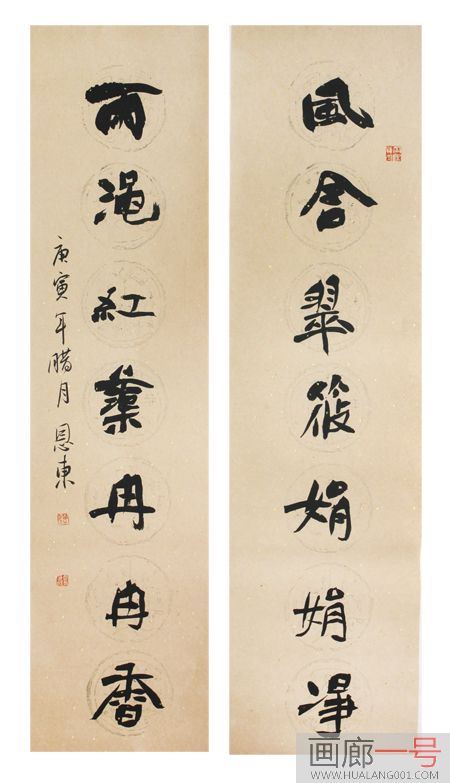 風含翠筱娟娟淨
雨浥紅蕖冉冉香
庚寅年腊月恩東
画廊一号
WWW.HUALANG001.COM